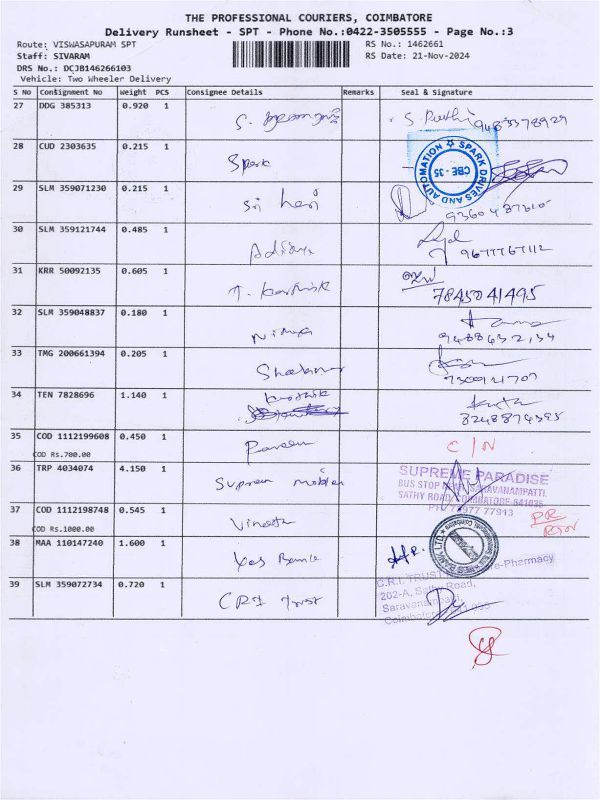 THE PROFESSIONAL COURIERS, COIMBATORE
Delivery Runsheet - SPT - Phone No.:0422-3505555 - Page No.:3
Route: VISWASAPURAM SPT
RS No.: 1462661
Staff: SIVARAM
RS Date: 21-Nov-2024
DRS No.: DCJB146266103
Vehicle: Two Wheeler Delivery
S No Consignment No Weight PCS Consignee Details Remarks Seal & Signature
27 DDG 385313 0.920 1
28 CUD 2303635 0.215 1 Spark
SPARK DRIVES AND AUTOMATION
CBE - 35
29 SLM 359071230 0.215 1 Sri hari
30 SLM 359121744 0.485 1
9677767112
31 KRR 50092135 0.605 1 T. Karthik
7845041495
32 SLM 359048837 0.180 1 Nithya
33 TMG 200661394 0.205 1
34 TEN 7828696 1.140 1 Karthik
8248874395
35 COD 1112199608 0.450 1 Praveen C/N
COD Rs.700.00
36 TRP 4034074 4.150 1 Supreme mobiles
SUPREME PARADISE
BUS STOP SARAVANAMPATTI,
SATHY ROAD, COIMBATORE-641035
PH: 77977 77913
37 COD 1112198748 0.545 1
COD Rs.1000.00
38 MAA 110147240 1.600 1 Yes Bank
39 SLM 359072734 0.720 1 CRI Trust
C.R.I. TRUST Pharmacy
202-A, Sathy Road,
Saravanampatti,